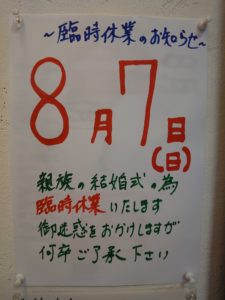 ~臨時休業のお知らせ~
8月7日
(日)
親族の結婚式の為
臨時休業いたします
御迷惑をおかけしますが
何卒ご了承下さい